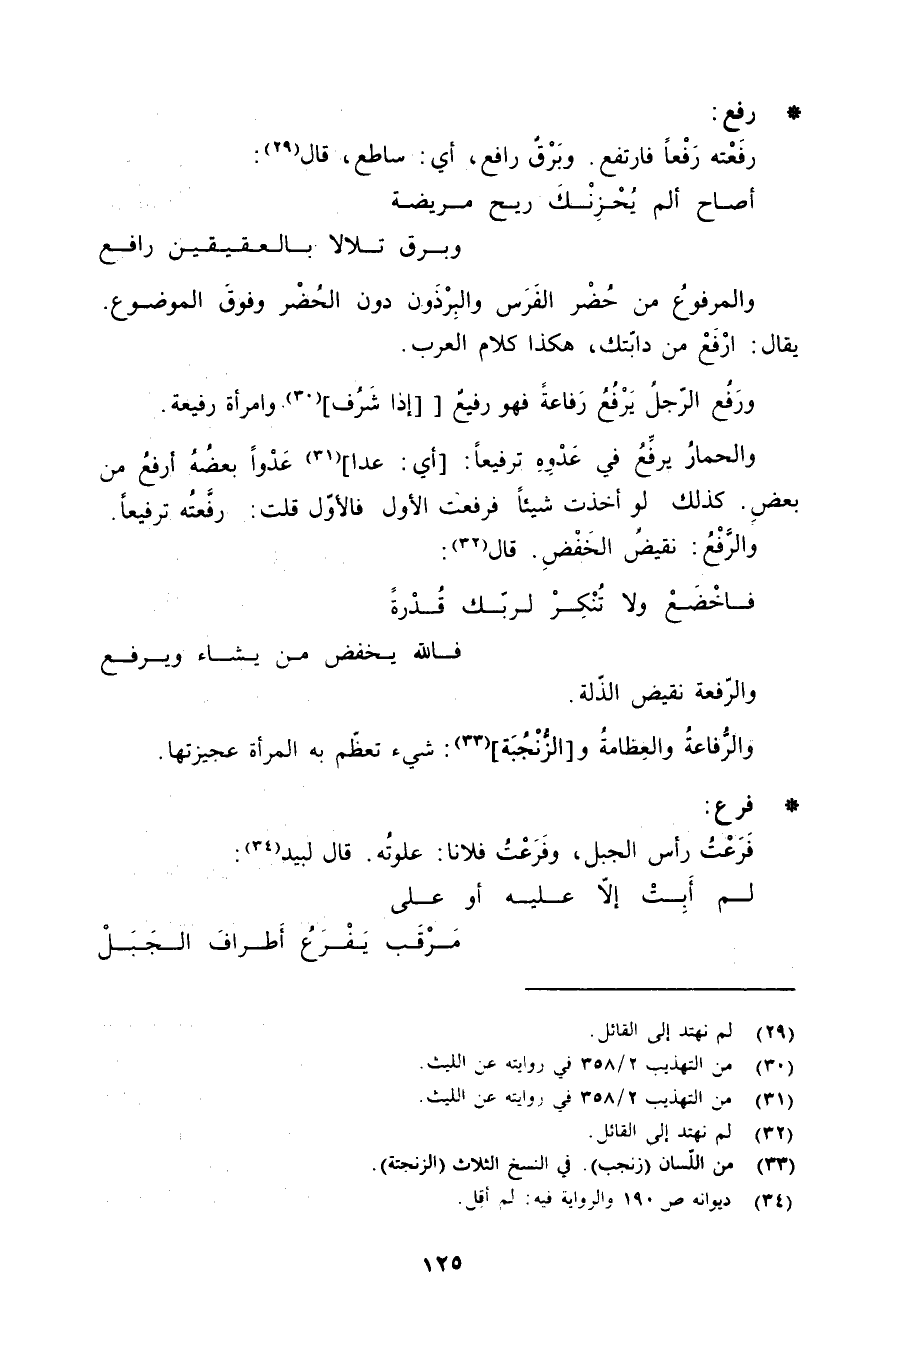 * رفع:
رفَعْته رَفْعاً فارتفع. وبَرْقٌ رافع، أي: ساطع، قال(٢٩):
أصاح ألم يُحْزِنْك ريح مريضة
وبرق تلالا بالعقيقين رافع
والمرفوعُ من حُضْر الفَرَس والبِرْذَون دون الحُضْر وفوقَ الموضوع.
يقال: ارْفَعْ من دابّتك، هكذا كلام العرب.
ورَفُع الرّجلُ يَرْفُعُ رَفاعةً فهو رفيعٌ [ [إذا شَرُف](٣٠). وامرأة رفيعة.
والحمارُ يرفِّعُ في عَدْوِهِ ترفيعاً: [أي: عدا](٣١) عَدْواً بعضُهُ أرفعُ من
بعضٍ. كذلك لو أخذت شيئاً فرفعت الأول فالأوّل قلت: رفّعته ترفيعاً.
والرَّفْعُ: نقيضُ الخَفْضِ. قال(٣٢):
فاخْضَعْ ولا تُنْكِرْ لربّك قُدْرةً
فالله يخفض من يشاء ويرفع
والرّفعة نقيض الذّلة.
والرُّفاعةُ والعِظامةُ و[الزُّنْجُبَة](٣٣): شيء تعظّم به المرأة عجيزتها.
* فرع:
فَرَعْتُ رأس الجبل، وفَرَعْتُ فلانا: علوتُه. قال لبيد(٣٤):
لم أَبِتْ إلاّ عليه أو على
مَرْقَب يَفْرَعُ أطرافَ الجَبَلْ
(٢٩) لم نهتد إلى القائل.
(٣٠) من التهذيب ٣٥٨/٢ في روايته عن الليث.
(٣١) من التهذيب ٣٥٨/٢ في روايته عن الليث.
(٣٢) لم نهتد إلى القائل.
(٣٣) من اللّسان (زنجب). في النسخ الثلاث (الزنجتة).
(٣٤) ديوانه ص ١٩٠ والرواية فيه: لم أقِل.
١٢٥